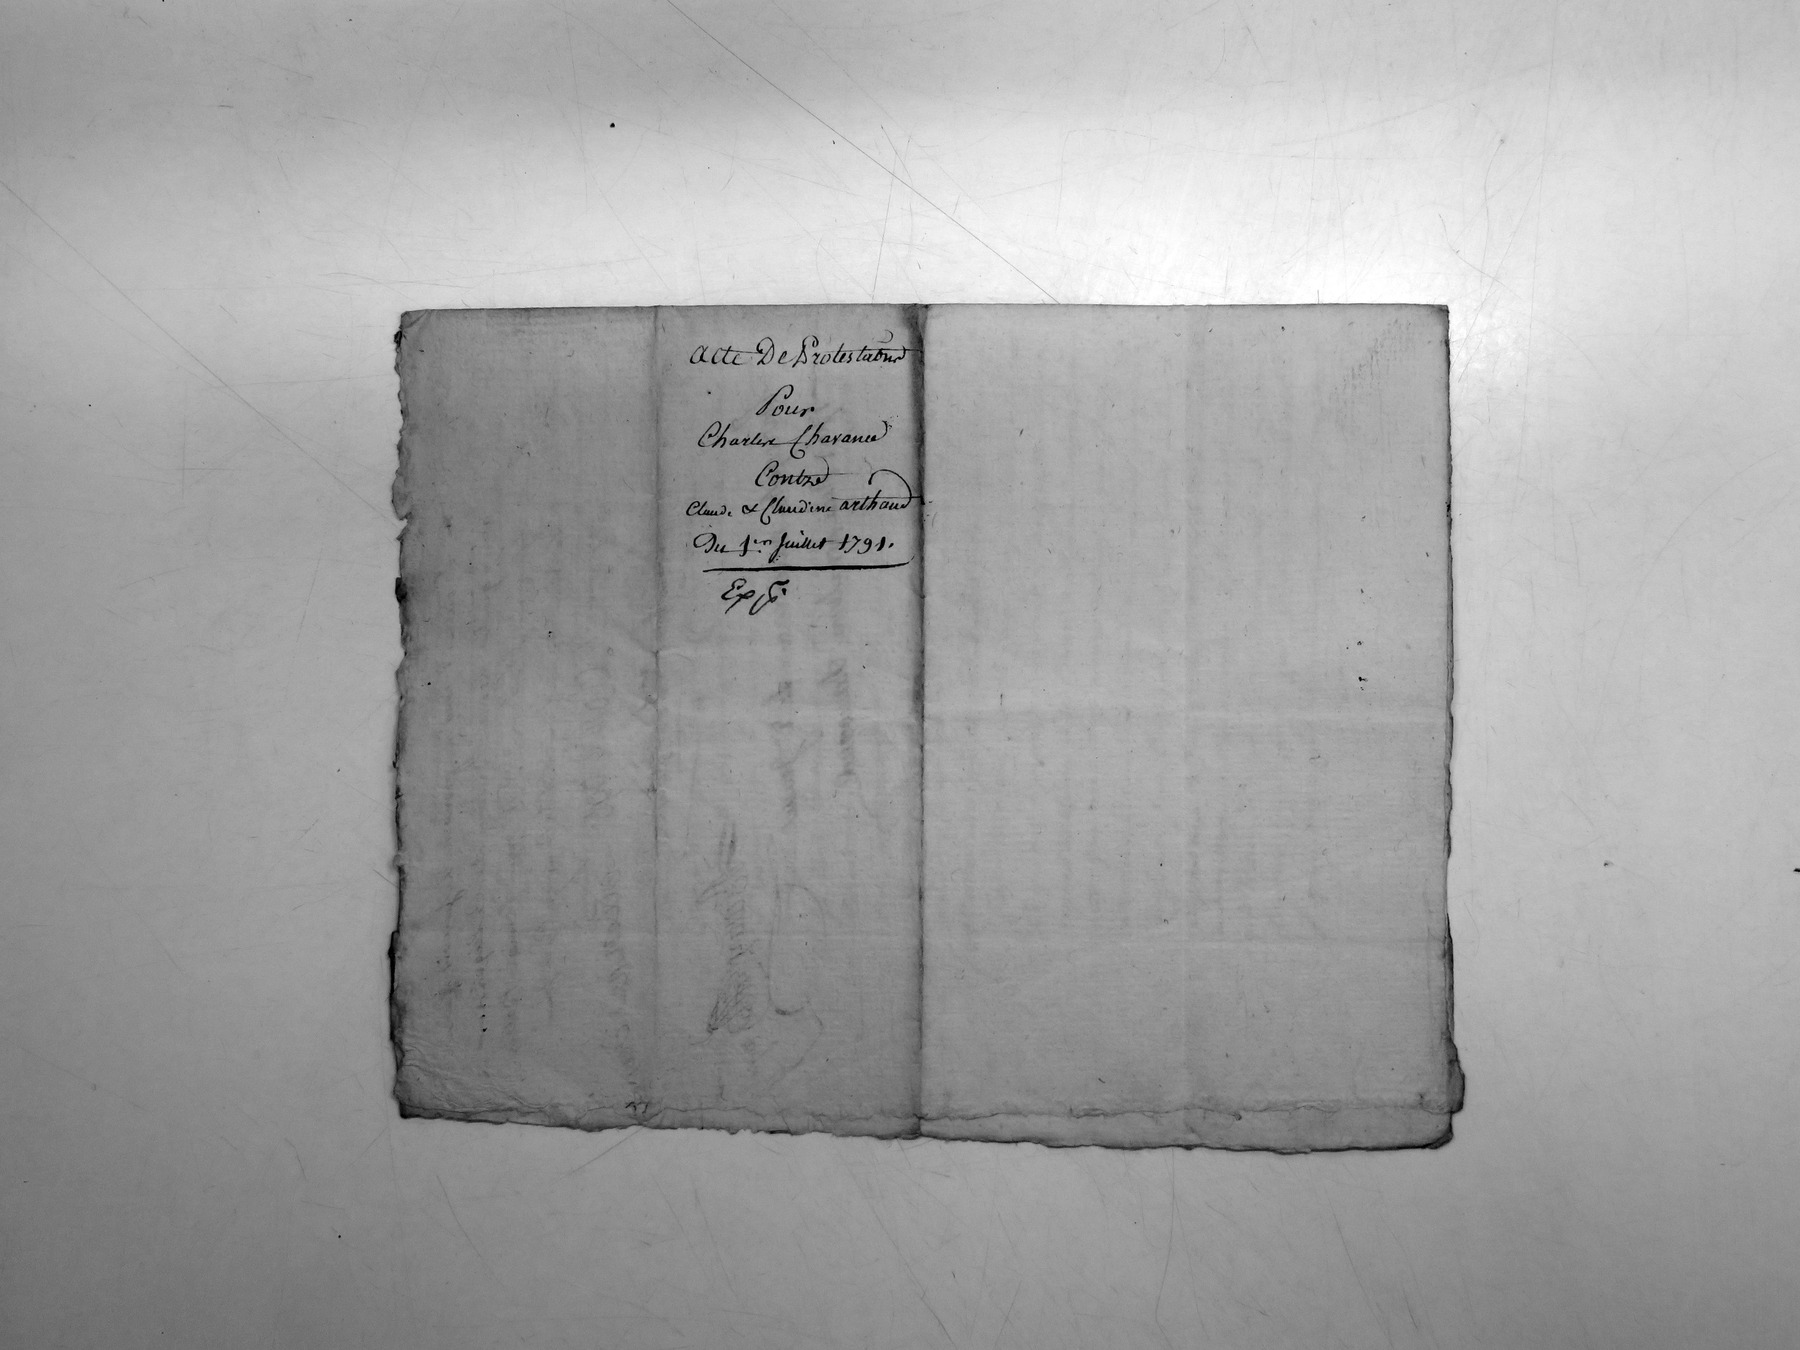 Acte De Protestaõn
Pour
Charles Chavanne
Contre
Claude & Claudine arthaud
Du 1er Juillet 1791.
Exp